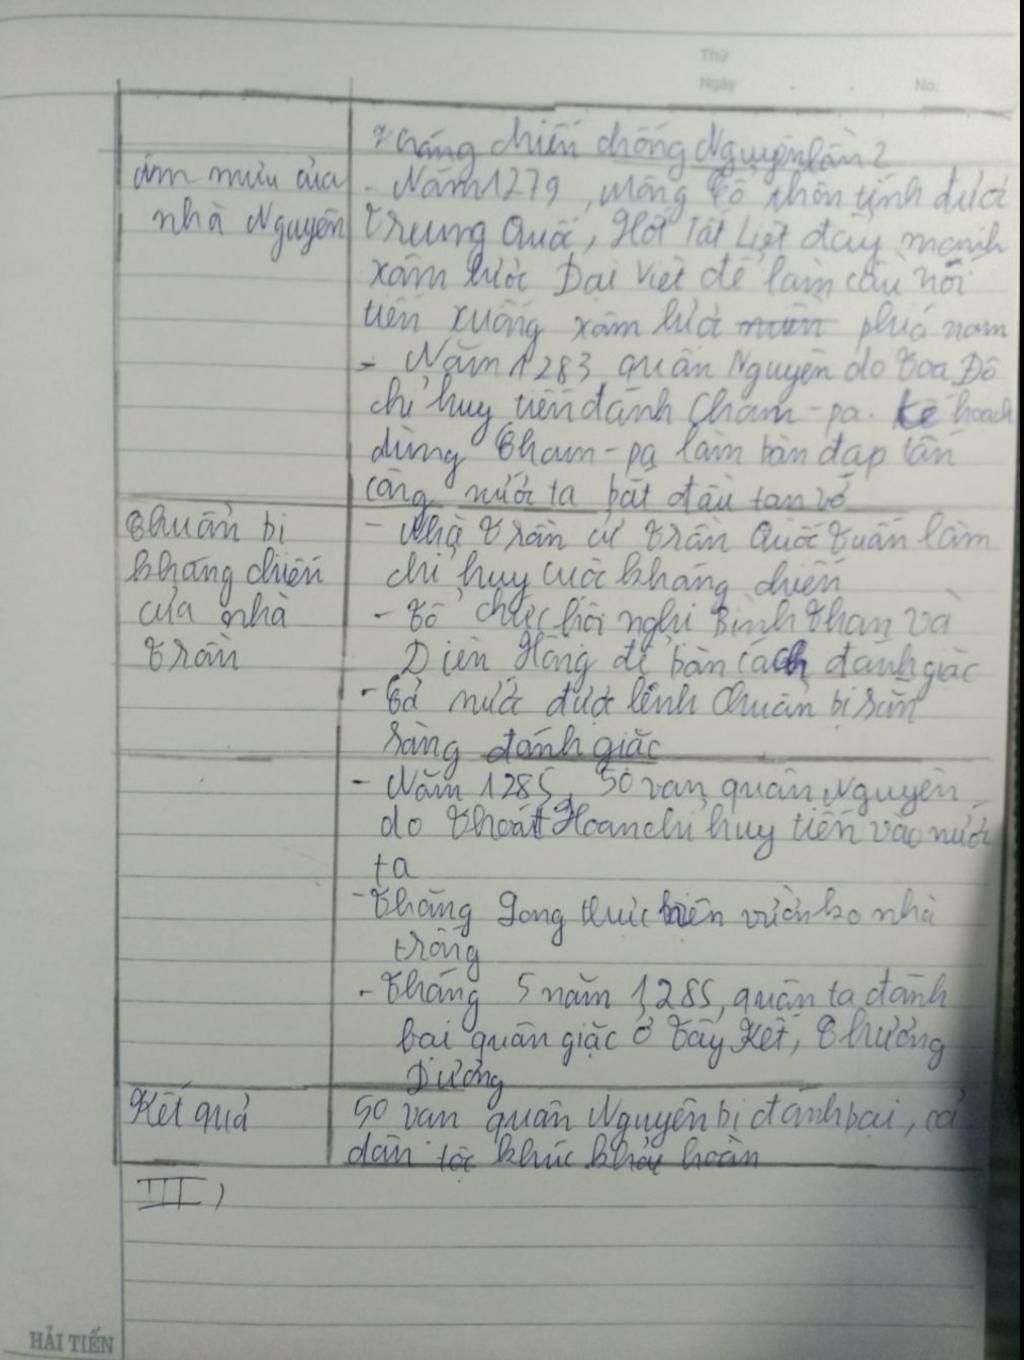 Thứ
Ngày . . No.
Kháng chiến chống Nguyên lần 2
âm mưu của
nhà Nguyên
- Năm 1279, Mông Cổ thôn tính được
Trung Quốc, Hốt Tất Liệt đẩy mạnh
xâm lược Đại Việt để làm cầu nối
tiến xuống xâm lược phía nam
- Năm 1283 quân Nguyên do Toa Đô
chỉ huy tiến đánh Cham-pa. Kế hoạch
dùng Cham-pa làm bàn đạp tấn
công nước ta bắt đầu tan vỡ
Chuẩn bị
kháng chiến
của nhà
Trần
- Nhà Trần cử Trần Quốc Tuấn làm
chỉ huy cuộc kháng chiến
- Tổ chức hội nghị Bình Than và
Diên Hồng để bàn cách đánh giặc
- Cả nước được lệnh chuẩn bị sẵn
sàng đánh giặc
- Năm 1285, 50 vạn quân Nguyên
do Thoát Hoan chỉ huy tiến vào nước
ta
- Thăng Long thực hiện vườn ko nhà
trống
- Tháng 5 năm 1285, quân ta đánh
bại quân giặc ở Tây Kết, Chương
Dương
Kết quả
50 vạn quân Nguyên bị đánh bại, cả
dân tộc khúc khải hoàn
III)
HẢI TIẾN